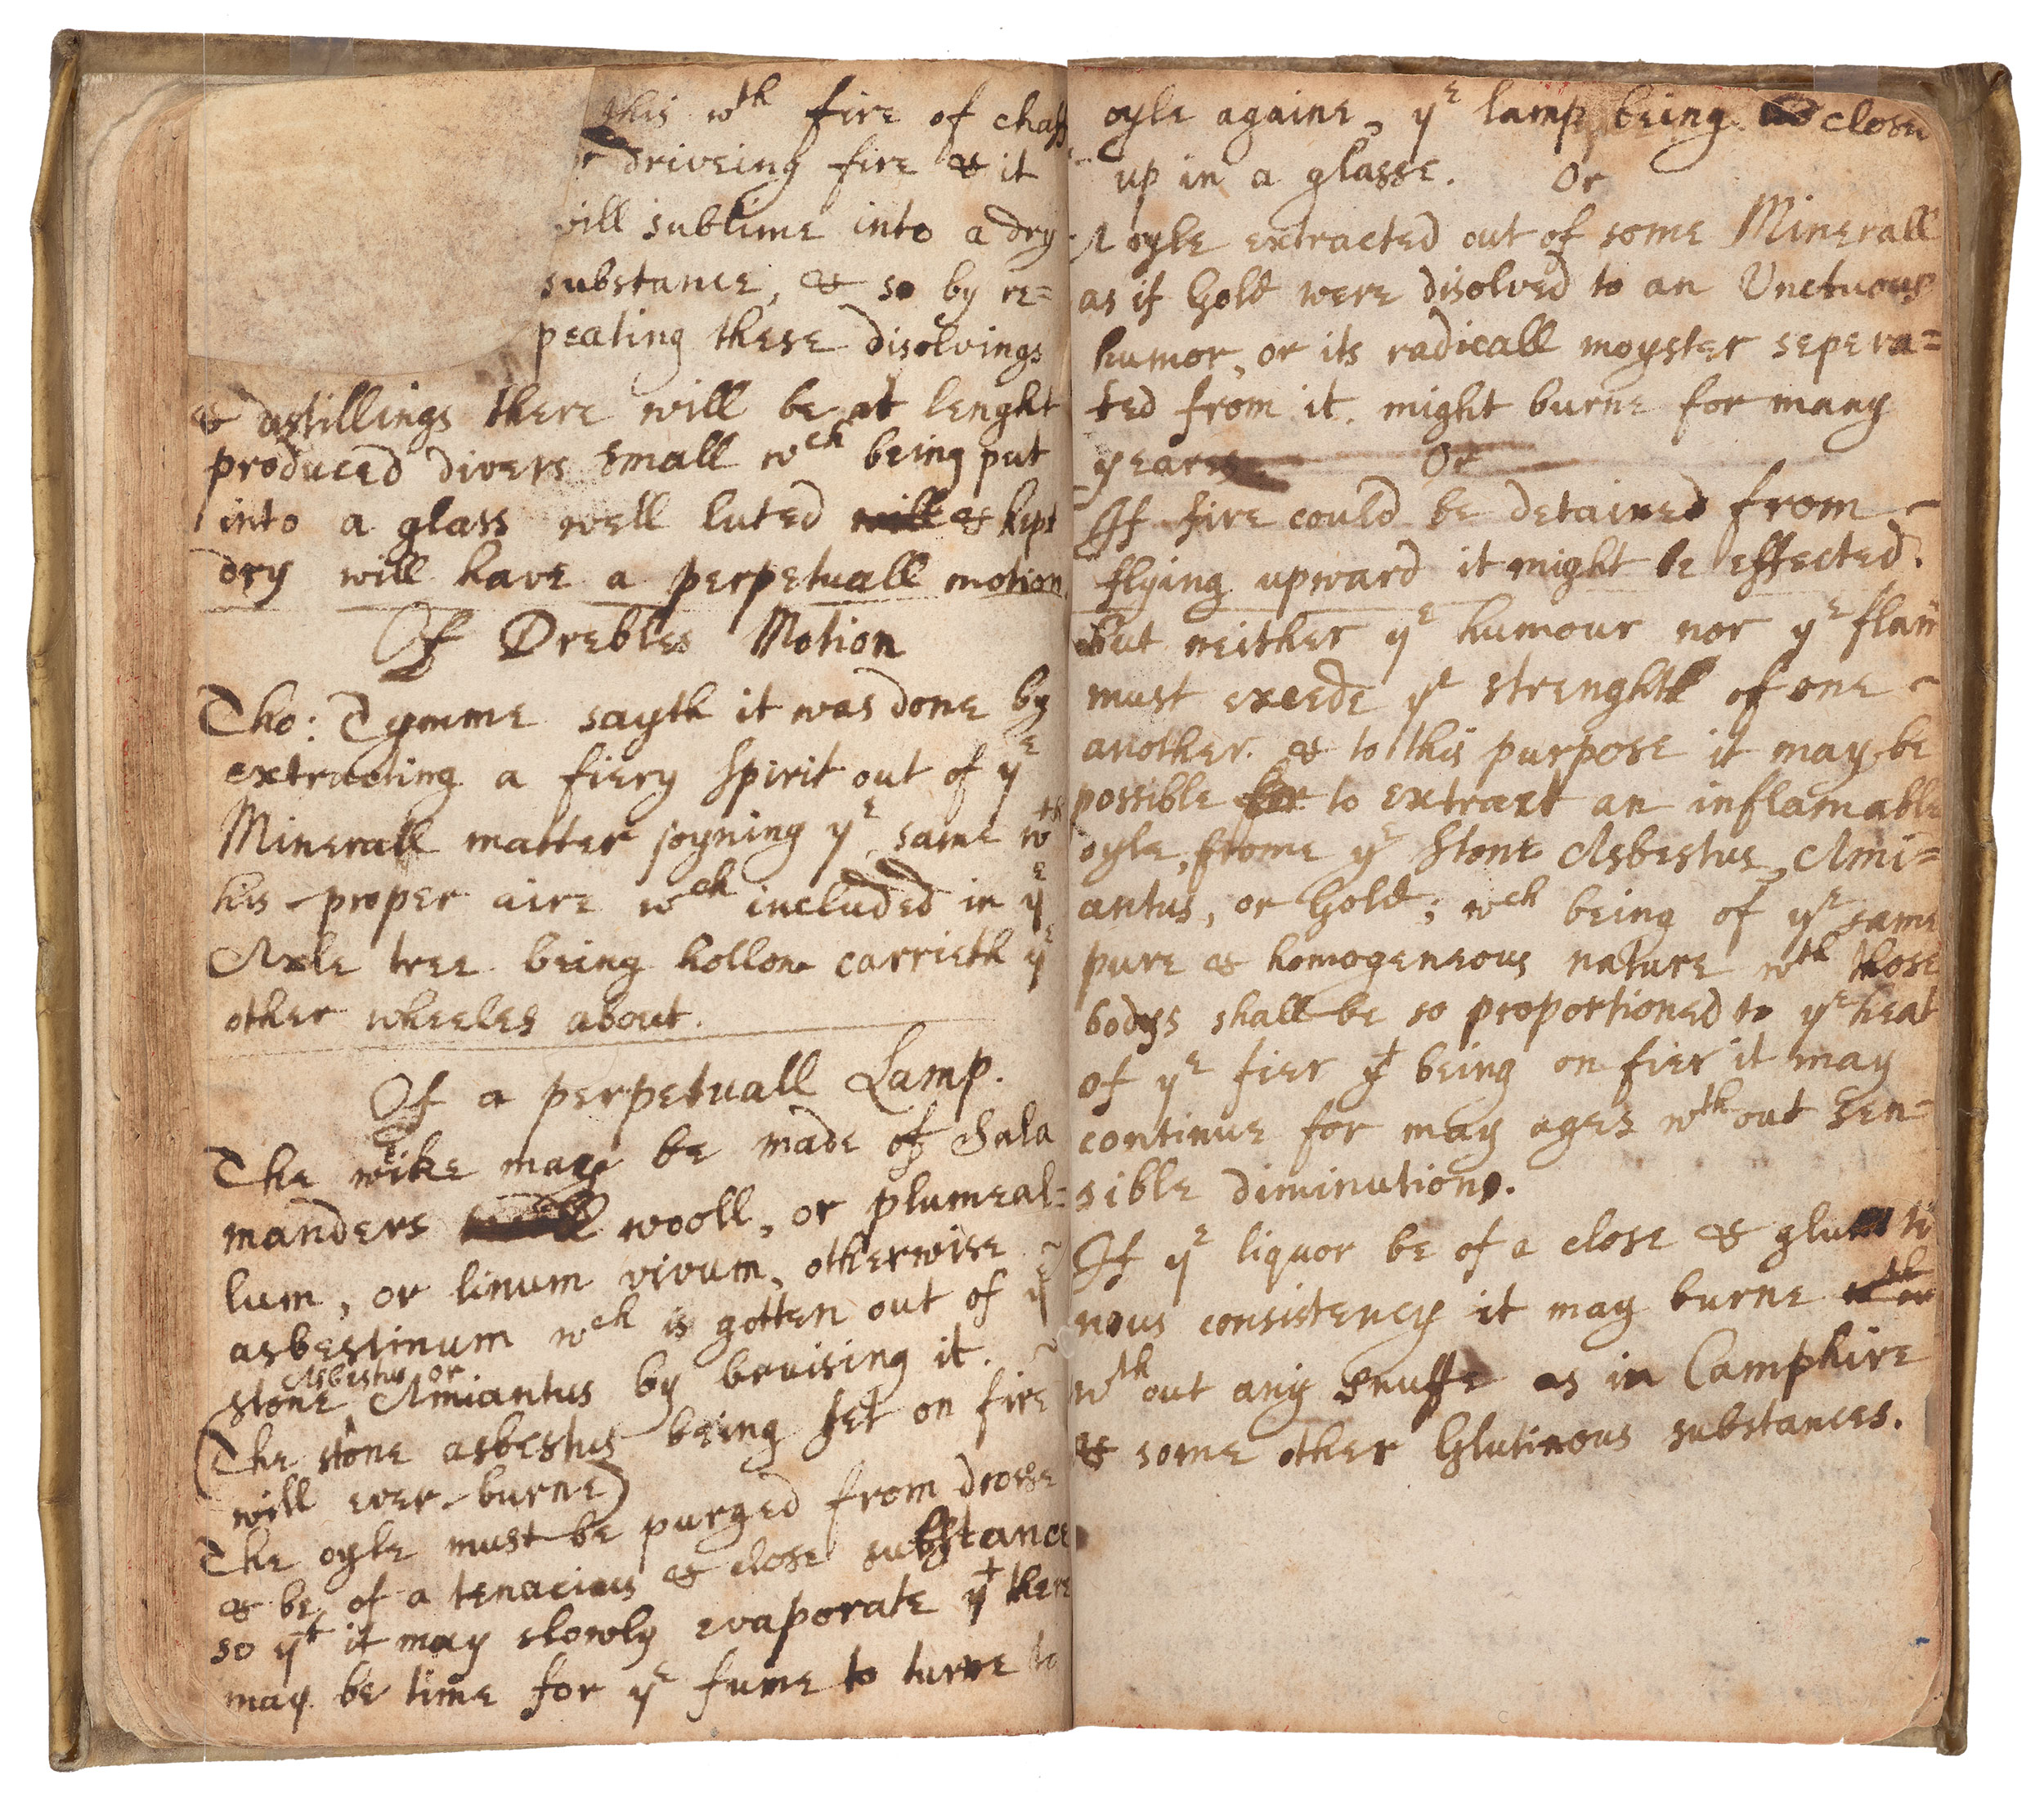 this wth fire of chaff
driveing fire & it
will sublime into a dry
substance, & so by re=
peating these disolvings
& distillings there will be at lenght
produced divers small wch being put
into a glass well luted will & kept
dry will have a perpetuall motion.
Of Drebles Motion
Tho: Tymme sayth it was done by
extracting a fiery spirit out of ye
Minerall matter joyning ye same wth
his proper aire wch included in ye
Axle tree being hollow carrieth ye
other wheeles about.
Of a perpetuall Lamp.
The wike may be made of Sala
manders wooll, or plumeal=
lum, or linum vivum, otherwise
asbestinum wch is gotten out of ye
Asbestus or
stone Amiantus by bruising it.
(The stone asbestus being set on fire
will ever burne)
The oyle must be purged from drosse
& be of a tenacious & close substance
so yt it may slowly evaporate yt there
may be time for ye fume to turne to
oyle againe, ye lamp being close
up in a glasse. Or
A oyle extracted out of some Minerall
as if Gold were disolved to an Unctuous
humor, or its radicall moyster sepera=
ted from it. might burne for many
yeares. Or
If fire could be detained from
flying upward it might be effected.
But neither ye humour nor ye flam̃
must exede ye strenghth of one
another. & to this purpose it may be
possible for to extract an inflamable
oyle, frome ye Stone Asbestus, Ami=
antus, or Gold; wch being of ye same
pure & homogeneous nature wth those
bodys shall be so proportioned to ye heat
of ye fier yt being on fier it may
continue for may ages wthout sen=
sible diminution.
If ye liquor be of a close & gluti
nous consistency it may burne
wthout any snuffe as in Camphire
& some other Glutinous substances.